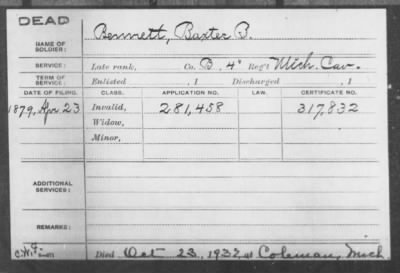 DEAD
NAME OF SOLDIER: Bennett, Baxter B.
SERVICE: Late rank, Co. B. 4" Reg't Mich. Cav.
TERM OF SERVICE: Enlisted , 1 Discharged , 1
DATE OF FILING. CLASS. APPLICATION NO. LAW. CERTIFICATE NO.
1879, Apr 23 Invalid, 281,458 317,832
Widow,
Minor,
ADDITIONAL SERVICES:
REMARKS:
Died Oct 23, 1932, at Coleman, Mich.